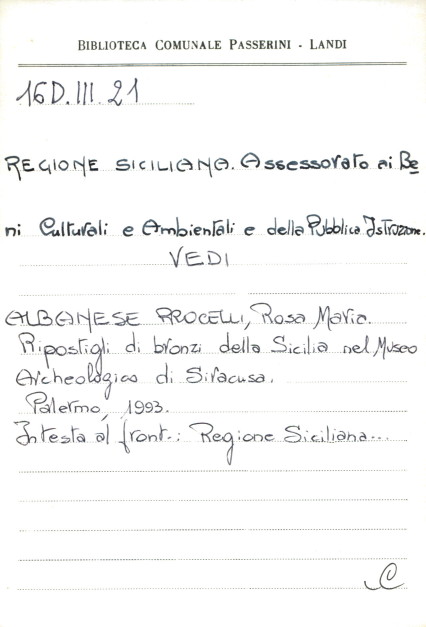 BIBLIOTECA COMUNALE PASSERINI - LANDI
16D.III.21
REGIONE SICILIANA. Assessorato ai Be
ni Culturali e Ambientali e della Pubblica Istruzione.
VEDI
ALBANESE PROCELLI, Rosa Maria.
Ripostigli di bronzi della Sicilia nel Museo
Archeologico di Siracusa.
Palermo, 1993.
Intesta al front.: Regione Siciliana...
C